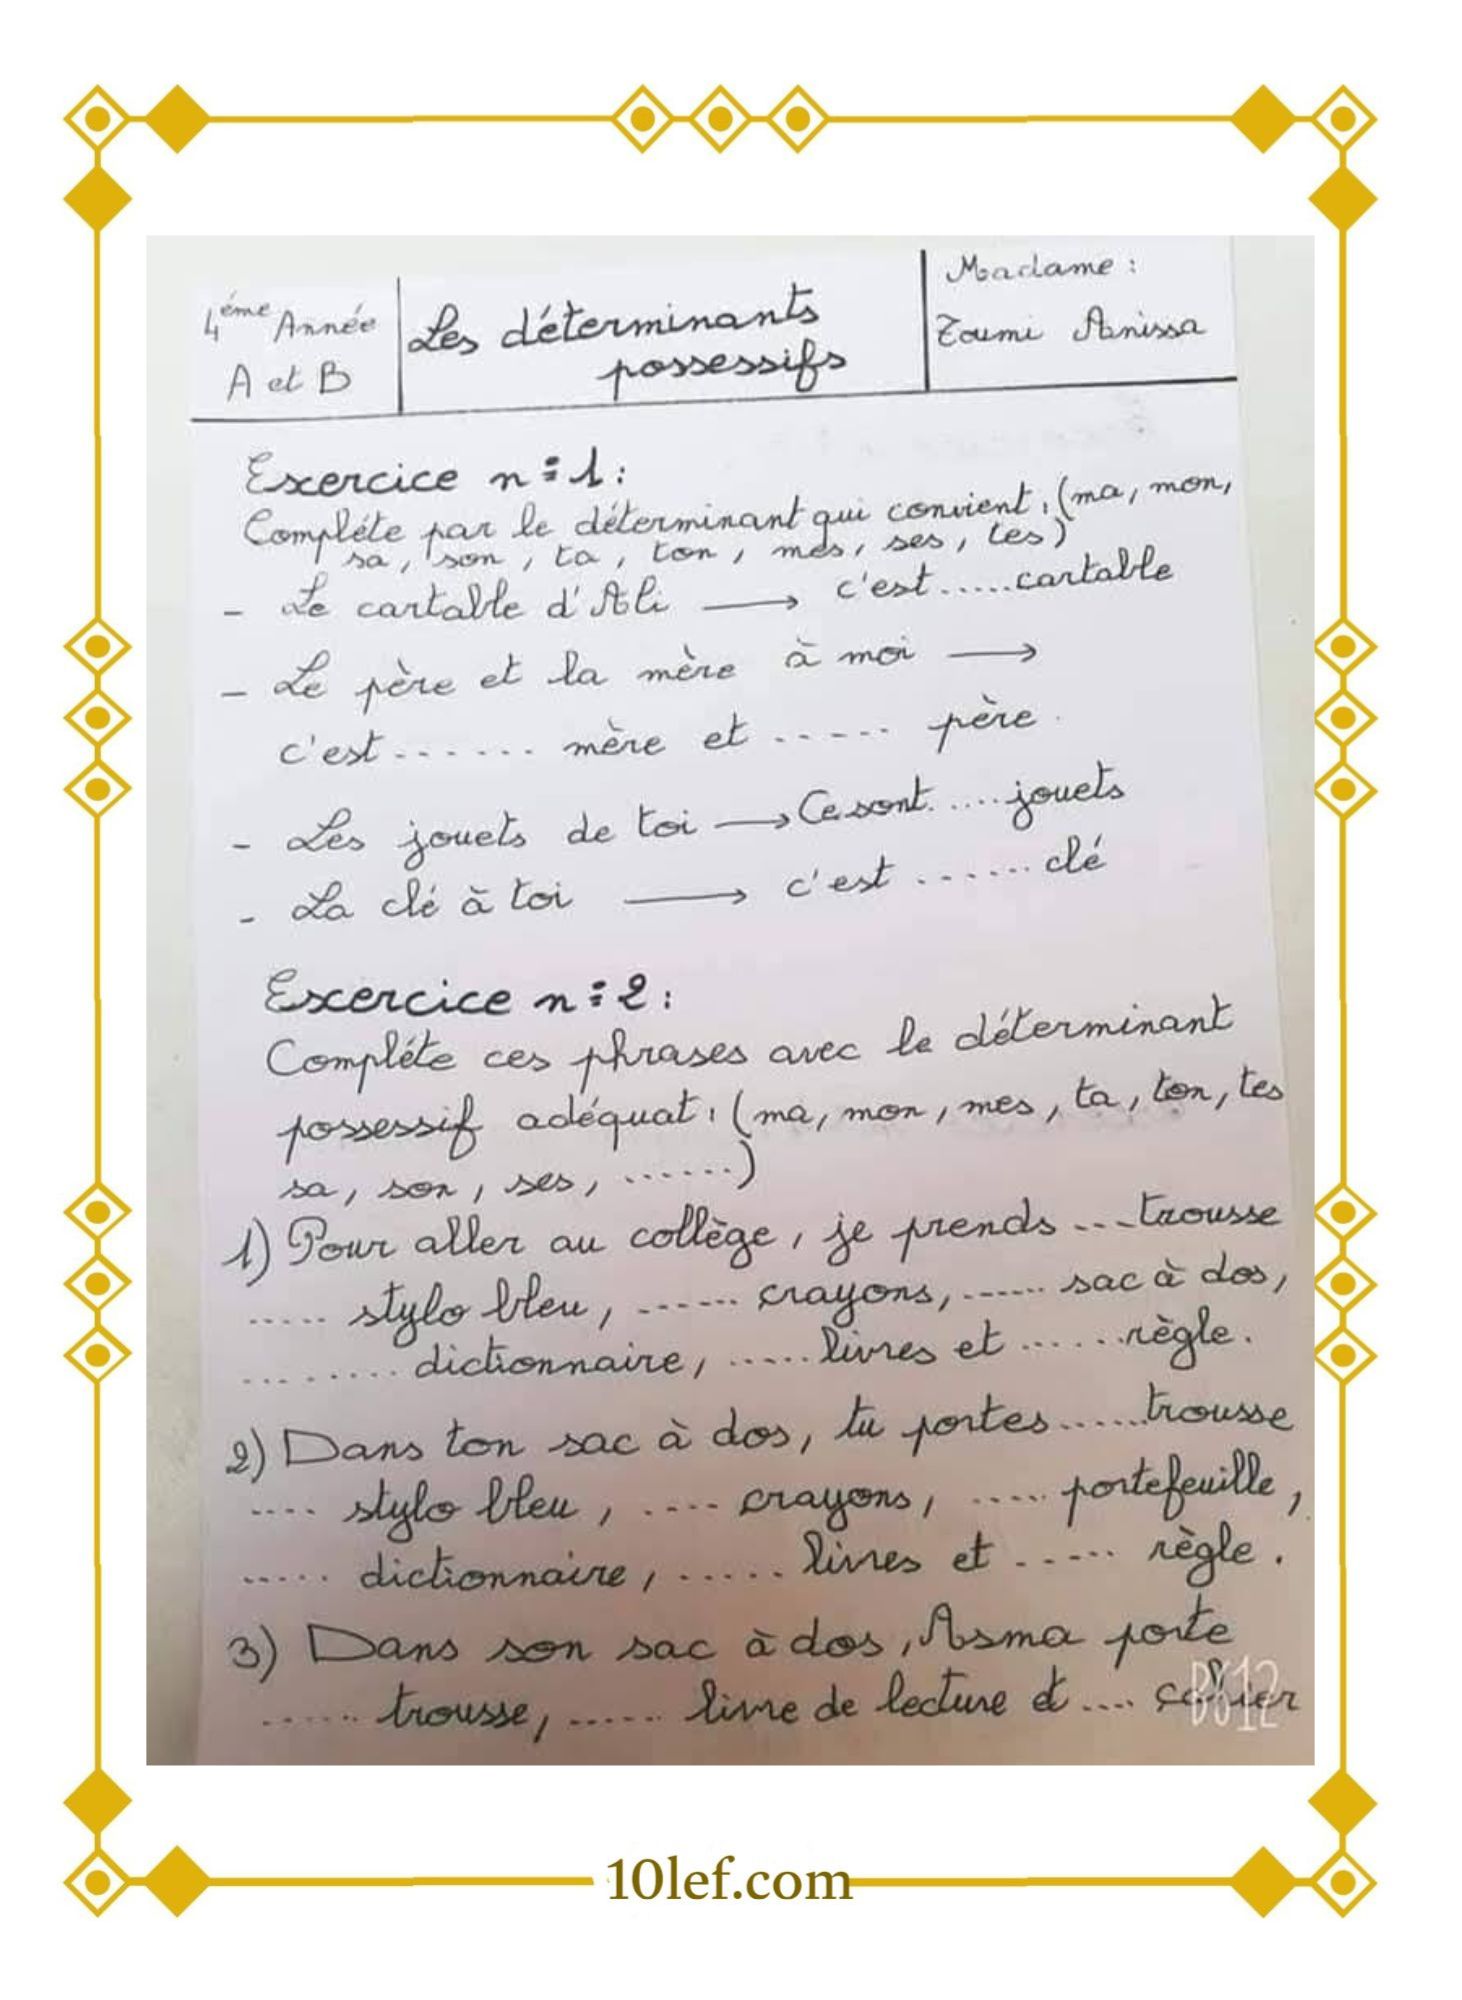 4ème Année
A et B
Les déterminants
possessifs
Madame :
Toumi Anissa
Exercice n°1 :
Compléte par le déterminant qui convient : (ma, mon,
sa, son, ta, ton, mes, ses, tes)
- Le cartable d'Ali → c'est.....cartable
- Le père et la mère à moi →
c'est....... mère et ...... père.
- Les jouets de toi → Ce sont.....jouets
- La clé à toi → c'est .......clé
Exercice n°2 :
Compléte ces phrases avec le déterminant
possessif adéquat : (ma, mon, mes, ta, ton, tes
sa, son, ses, .......)
1) Pour aller au collège, je prends ...trousse
..... stylo bleu, ...... crayons, ...... sac à dos,
......... dictionnaire, ..... livres et ......règle.
2) Dans ton sac à dos, tu portes......trousse
.... stylo bleu, ..... crayons, ..... portefeuille,
..... dictionnaire, ...... livres et ...... règle.
3) Dans son sac à dos, Asma porte
...... trousse, ...... livre de lecture et .... cahier
B612
10lef.com